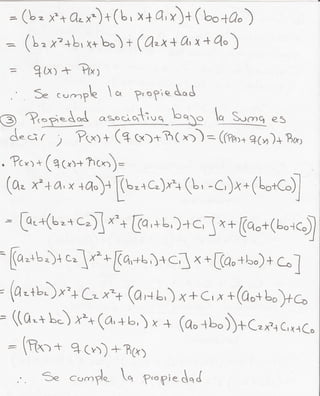 = (b₂x²+a₂x²)+(b₁x+a₁x)+(b₀+a₀)
= (b₂x²+b₁x+b₀)+(a₂x+a₁x+a₀)
= q(x) + P(x)
∴ Se cumple la propiedad
③ Propiedad asociativa bajo la Suma es
decir; P(x)+(q(x)+R(x))=((P(x)+q(x))+R(x)
• P(x)+(q(x)+R(x))=
(a₂x²+a₁x+a₀)+[(b₂+C₂)x²+(b₁-C₁)x+(b₀+C₀)]
= [a₂+(b₂+C₂)]x²+[(a₁+b₁)+C₁]x+[(a₀+(b₀+C₀)]
= [(a₂+b₂)+C₂]x²+[(a₁+b₁)+C₁]x+[(a₀+b₀)+C₀]
= (a₂+b₂)x²+C₂x²+(a₁+b₁)x+C₁x+(a₀+b₀)+C₀
= ((a₂+bc)x²+(a₁+b₁)x+(a₀+b₀))+C₂x²+C₁x+C₀
= (P(x)+q(x))+R(x)
∴ Se cumple la propiedad